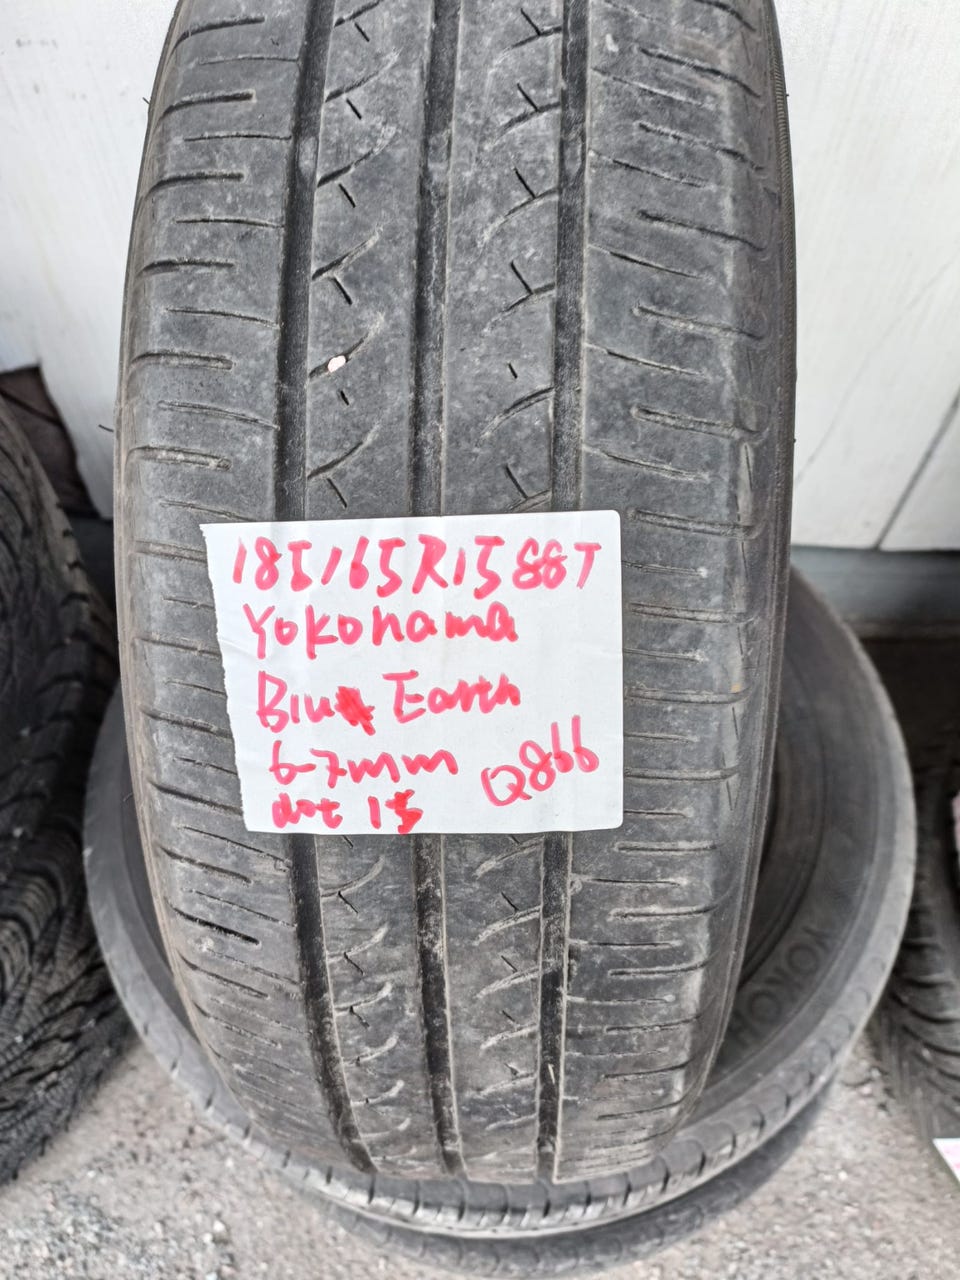 185/65R15 88T
Yokohama
Blue Earth
6-7mm
Q866
dot 15
YOKOH